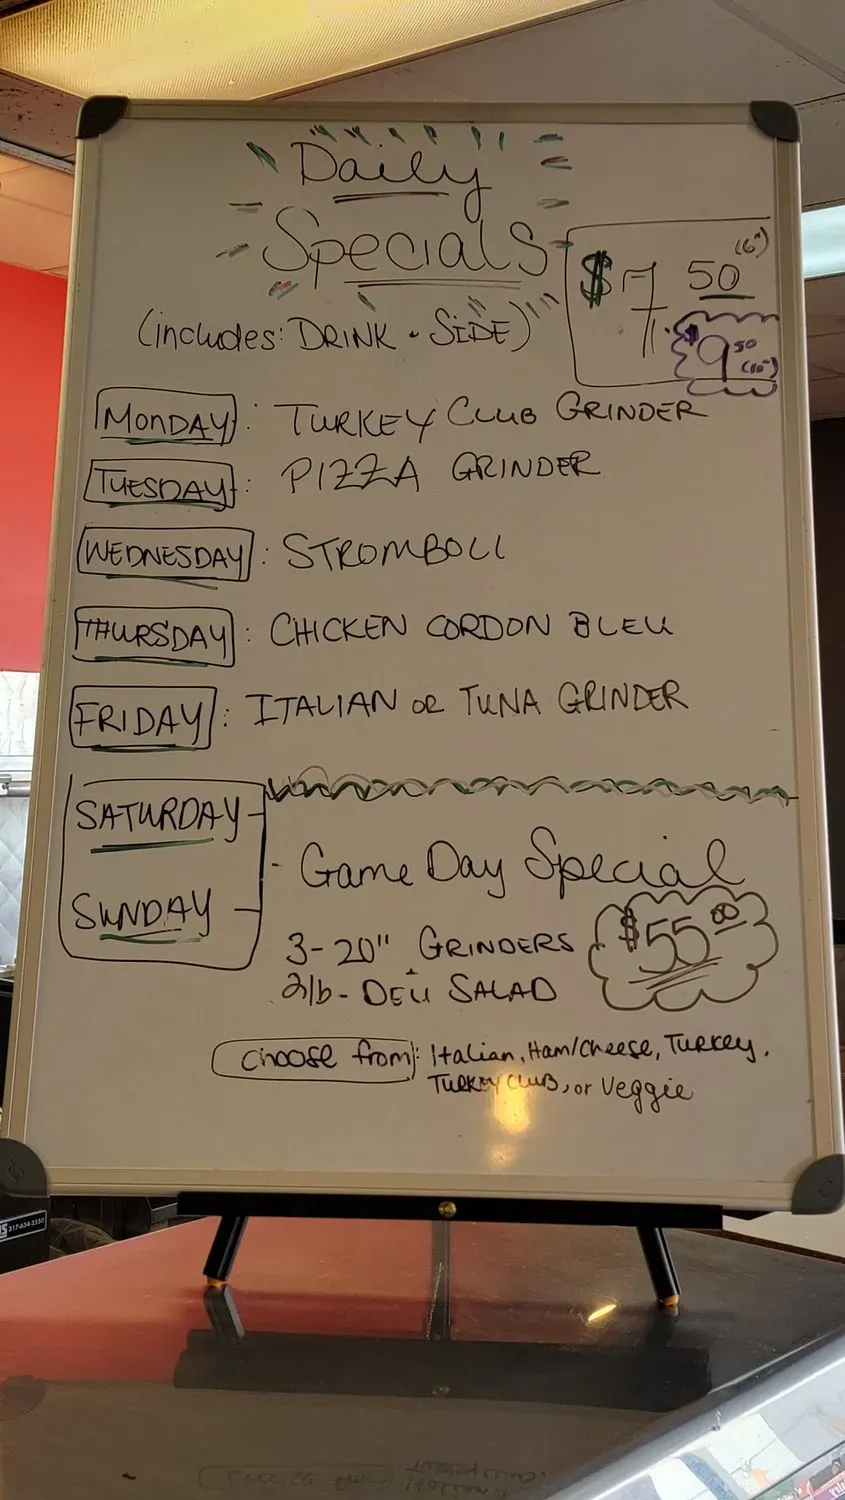 Daily
Specials
(includes: DRINK + SIDE)
$7 50 (6")
$9 50 (10")
MONDAY: TURKEY CLUB GRINDER
TUESDAY: PIZZA GRINDER
WEDNESDAY: STROMBOLI
THURSDAY: CHICKEN CORDON BLEU
FRIDAY: ITALIAN OR TUNA GRINDER
SATURDAY
SUNDAY
- Game Day Special
3-20" GRINDERS
+
2lb- DELI SALAD
$55 00
choose from: Italian, Ham/Cheese, Turkey,
TURKEY CLUB, or Veggie